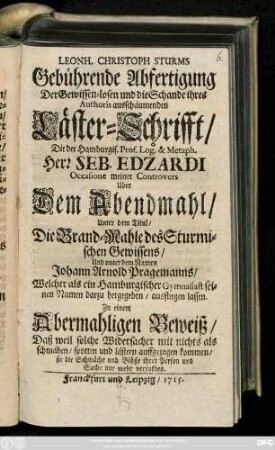 LEONH. CHRISTOPH STURMS
Gebührende Abfertigung
Der Gewissen-losen und die Schande ihres
Authoris ausschäumenden
Läster-Schrifft/
Die der Hamburgis. Prof. Log. & Metaph.
Herr SEB. EDZARDI
Occasione meiner Controvers
Uber
Dem Abendmahl/
Unter dem Titul/
Die Brand-Mahle des Sturmi-
schen Gewissens/
Und unter dem Namen
Johann Arnold Pragemanns/
Welcher als ein Hamburgischer Gymnasiast sei-
nen Namen darzu hergegeben/ ausfliegen lassen.
Zu einem
Abermahligen Beweiß/
Daß weil solche Widersacher mit nichts als
schmähen/ spotten und lästern auffgezogen kommen/
sie die Schwäche und Blösse ihrer Person und
Sache nur mehr verrathen.
Franckfurt und Leipzig/ 1715.